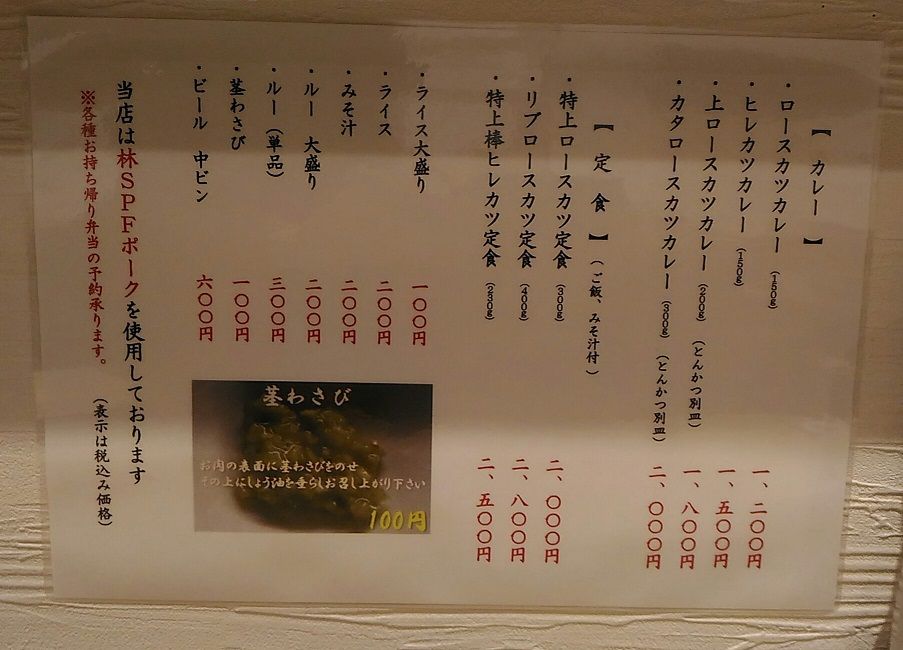 【 カレー 】
・ロースカツカレー(150g) 一、二〇〇円
・ヒレカツカレー(150g) 一、五〇〇円
・上ロースカツカレー(200g)(とんかつ別皿) 一、八〇〇円
・カタロースカツカレー(300g)(とんかつ別皿) 二、〇〇〇円
【 定 食 】(ご飯、みそ汁付)
・特上ロースカツ定食(300g) 二、〇〇〇円
・リブロースカツ定食(400g) 二、八〇〇円
・特上棒ヒレカツ定食(230g) 二、五〇〇円
・ライス大盛り 一〇〇円
・ライス 二〇〇円
・みそ汁 二〇〇円
・ルー 大盛り 二〇〇円
・ルー(単品) 三〇〇円
・茎わさび 一〇〇円
・ビール 中ビン 六〇〇円
茎わさび
お肉の表面に茎わさびをのせ
その上にしょう油を垂らしお召し上がり下さい
100円
当店は林SPFポークを使用しております
※各種お持ち帰り弁当の予約承ります。
(表示は税込み価格)